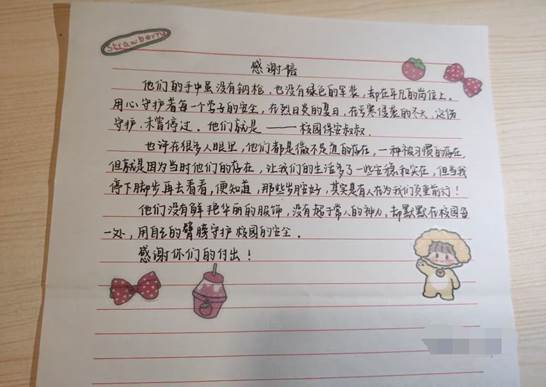 Strawberry
感谢语
他们的手中虽没有钢枪，也没有绿色的军装，却在平凡的岗位上，
用心守护着每一个学子的安全，在烈日炎炎的夏日，在寒侵袭的冬天，这份
守护，未曾停过，他们就是——校园保安叔叔。
也许在很多人眼里，他们都是微不足道的存在，一种被习惯的存在，
但就是因为当时他们的存在，让我们的生活多了一些安稳和实在，但当我
停下脚步再去看看，便知道，那些岁月安好，其实是有人在为我们负重前行！
他们没有鲜艳华丽的服饰，没有超于常人的神力，却默默在校园每
一处，用自己的臂膀守护校园的安全。
感谢你们的付出！